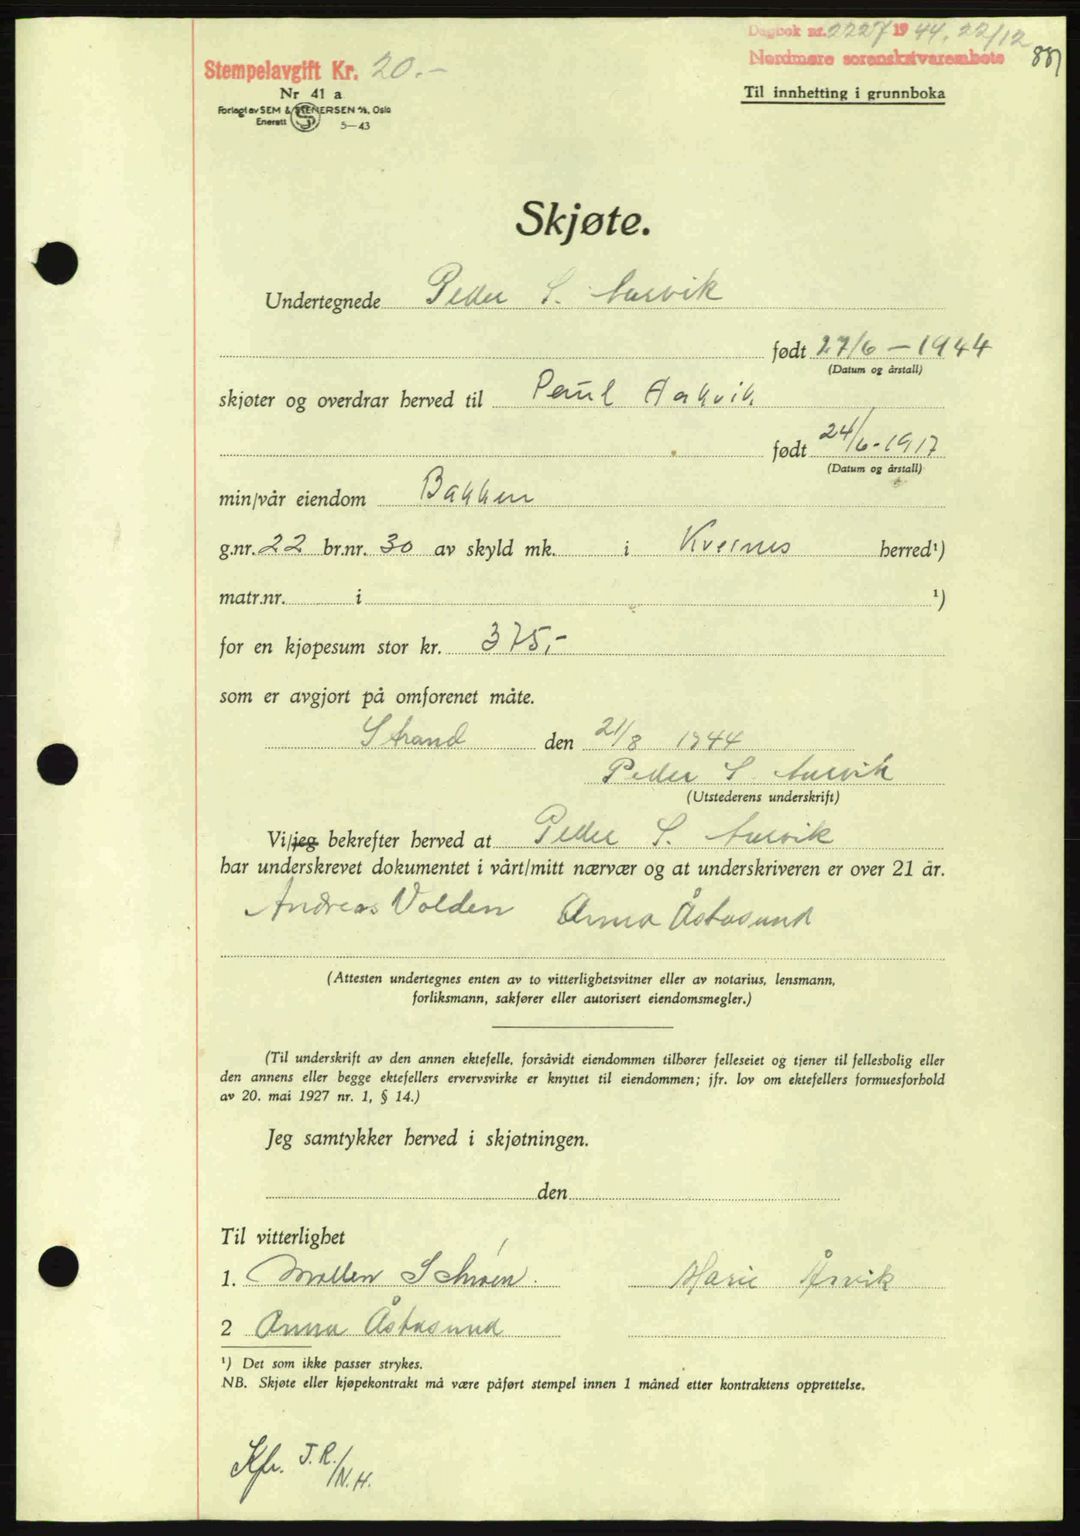 Dagbok nr. 2227 1944, 22/12
Stempelavgift Kr. 20.-
Nordmøre sorenskriverembete
887
Nr 41 a
Til innhefting i grunnboka
Forlagt av SEM & STENERSEN A/S, Oslo
Enerett 5-43
Skjøte.
Undertegnede Peder S. Aarvik
født 27/6 - 1944
(Datum og årstall)
skjøter og overdrar herved til Paul Aakvik
født 24/6-1917
(Datum og årstall)
min/vår eiendom Bakken
g.nr. 22 br.nr. 30 av skyld mk. i Kvernes herred¹)
matr.nr. i ¹)
for en kjøpesum stor kr. 375,-
som er avgjort på omforenet måte.
Strand den 21/8 1944
Peder S. Aarvik
(Utstederens underskrift)
Vi/jeg bekrefter herved at Peder S. Aarvik
har underskrevet dokumentet i vårt/mitt nærvær og at underskriveren er over 21 år.
Andreas Volden Anna Åstasund
(Attesten undertegnes enten av to vitterlighetsvitner eller av notarius, lensmann,
forliksmann, sakfører eller autorisert eiendomsmegler.)
(Til underskrift av den annen ektefelle, forsåvidt eiendommen tilhører felleseiet og tjener til fellesbolig eller
den annens eller begge ektefellers ervervsvirke er knyttet til eiendommen; jfr. lov om ektefellers formuesforhold
av 20. mai 1927 nr. 1, § 14.)
Jeg samtykker herved i skjøtningen.
den
Til vitterlighet
1. Marie Årvik
2 Anna Åstasund
¹) Det som ikke passer strykes.
NB. Skjøte eller kjøpekontrakt må være påført stempel innen 1 måned etter kontraktens opprettelse.
Kfr. J.R./N.H.